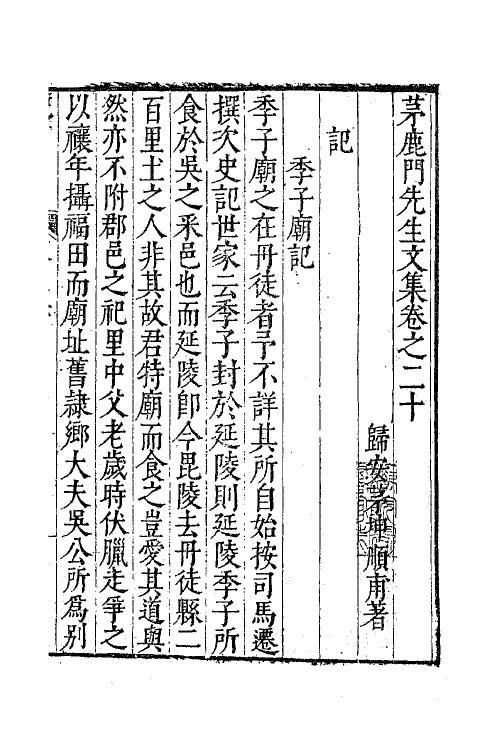 茅鹿門先生文集卷之二十
歸安茅坤順甫著
記
季子廟記
季子廟之在丹徒者予不詳其所自始按司馬遷
撰次史記世家云季子封於延陵則延陵季子所
食於吳之采邑也而延陵卽今毘陵去丹徒縣二
百里土之人非其故君特廟而食之豈愛其道與
然亦不附郡邑之祀里中父老歲時伏臘走爭之
以禳年攝福田而廟址舊隷鄉大夫吳公所爲别